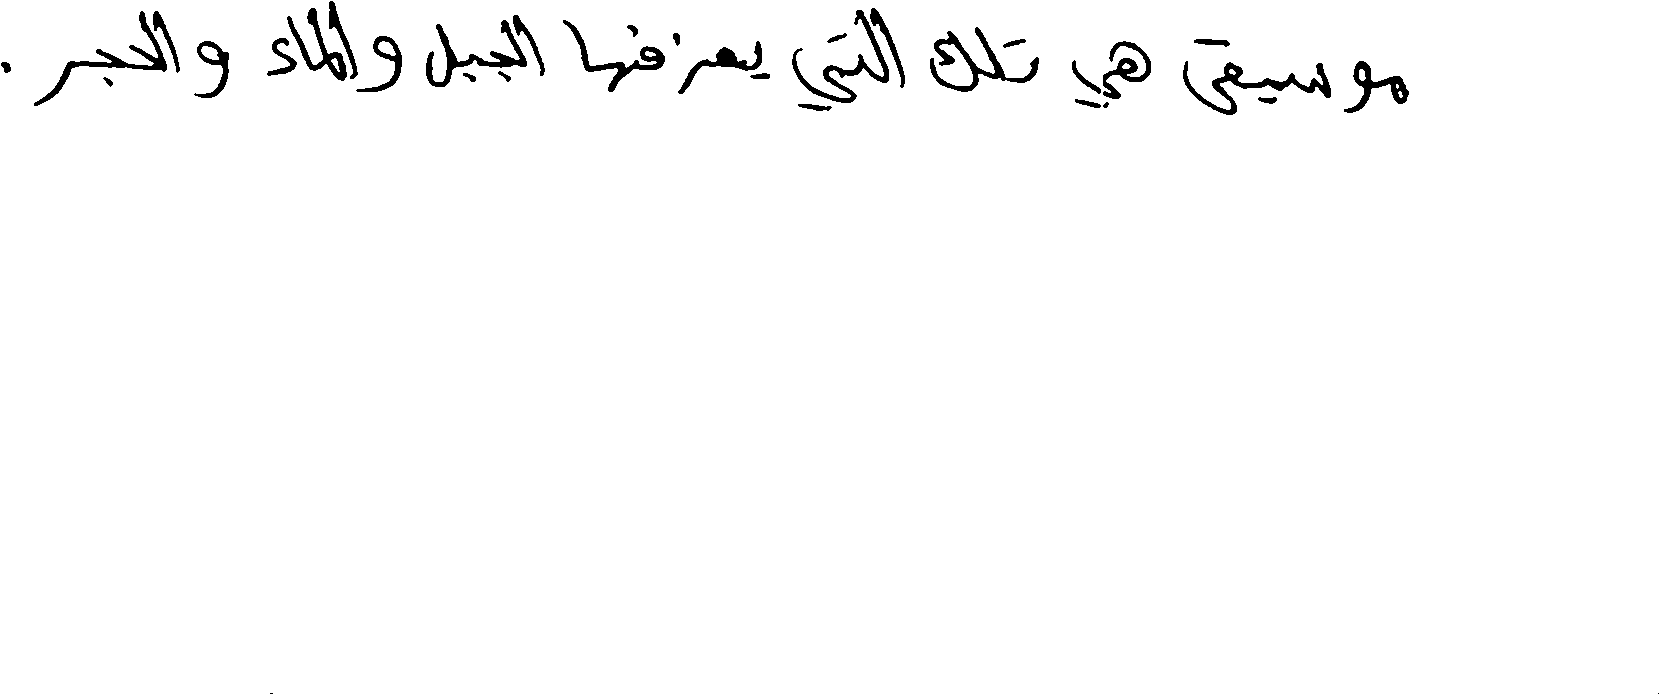 موسيقى هي تلك التي يعزفها الجبل والماء والحجر .